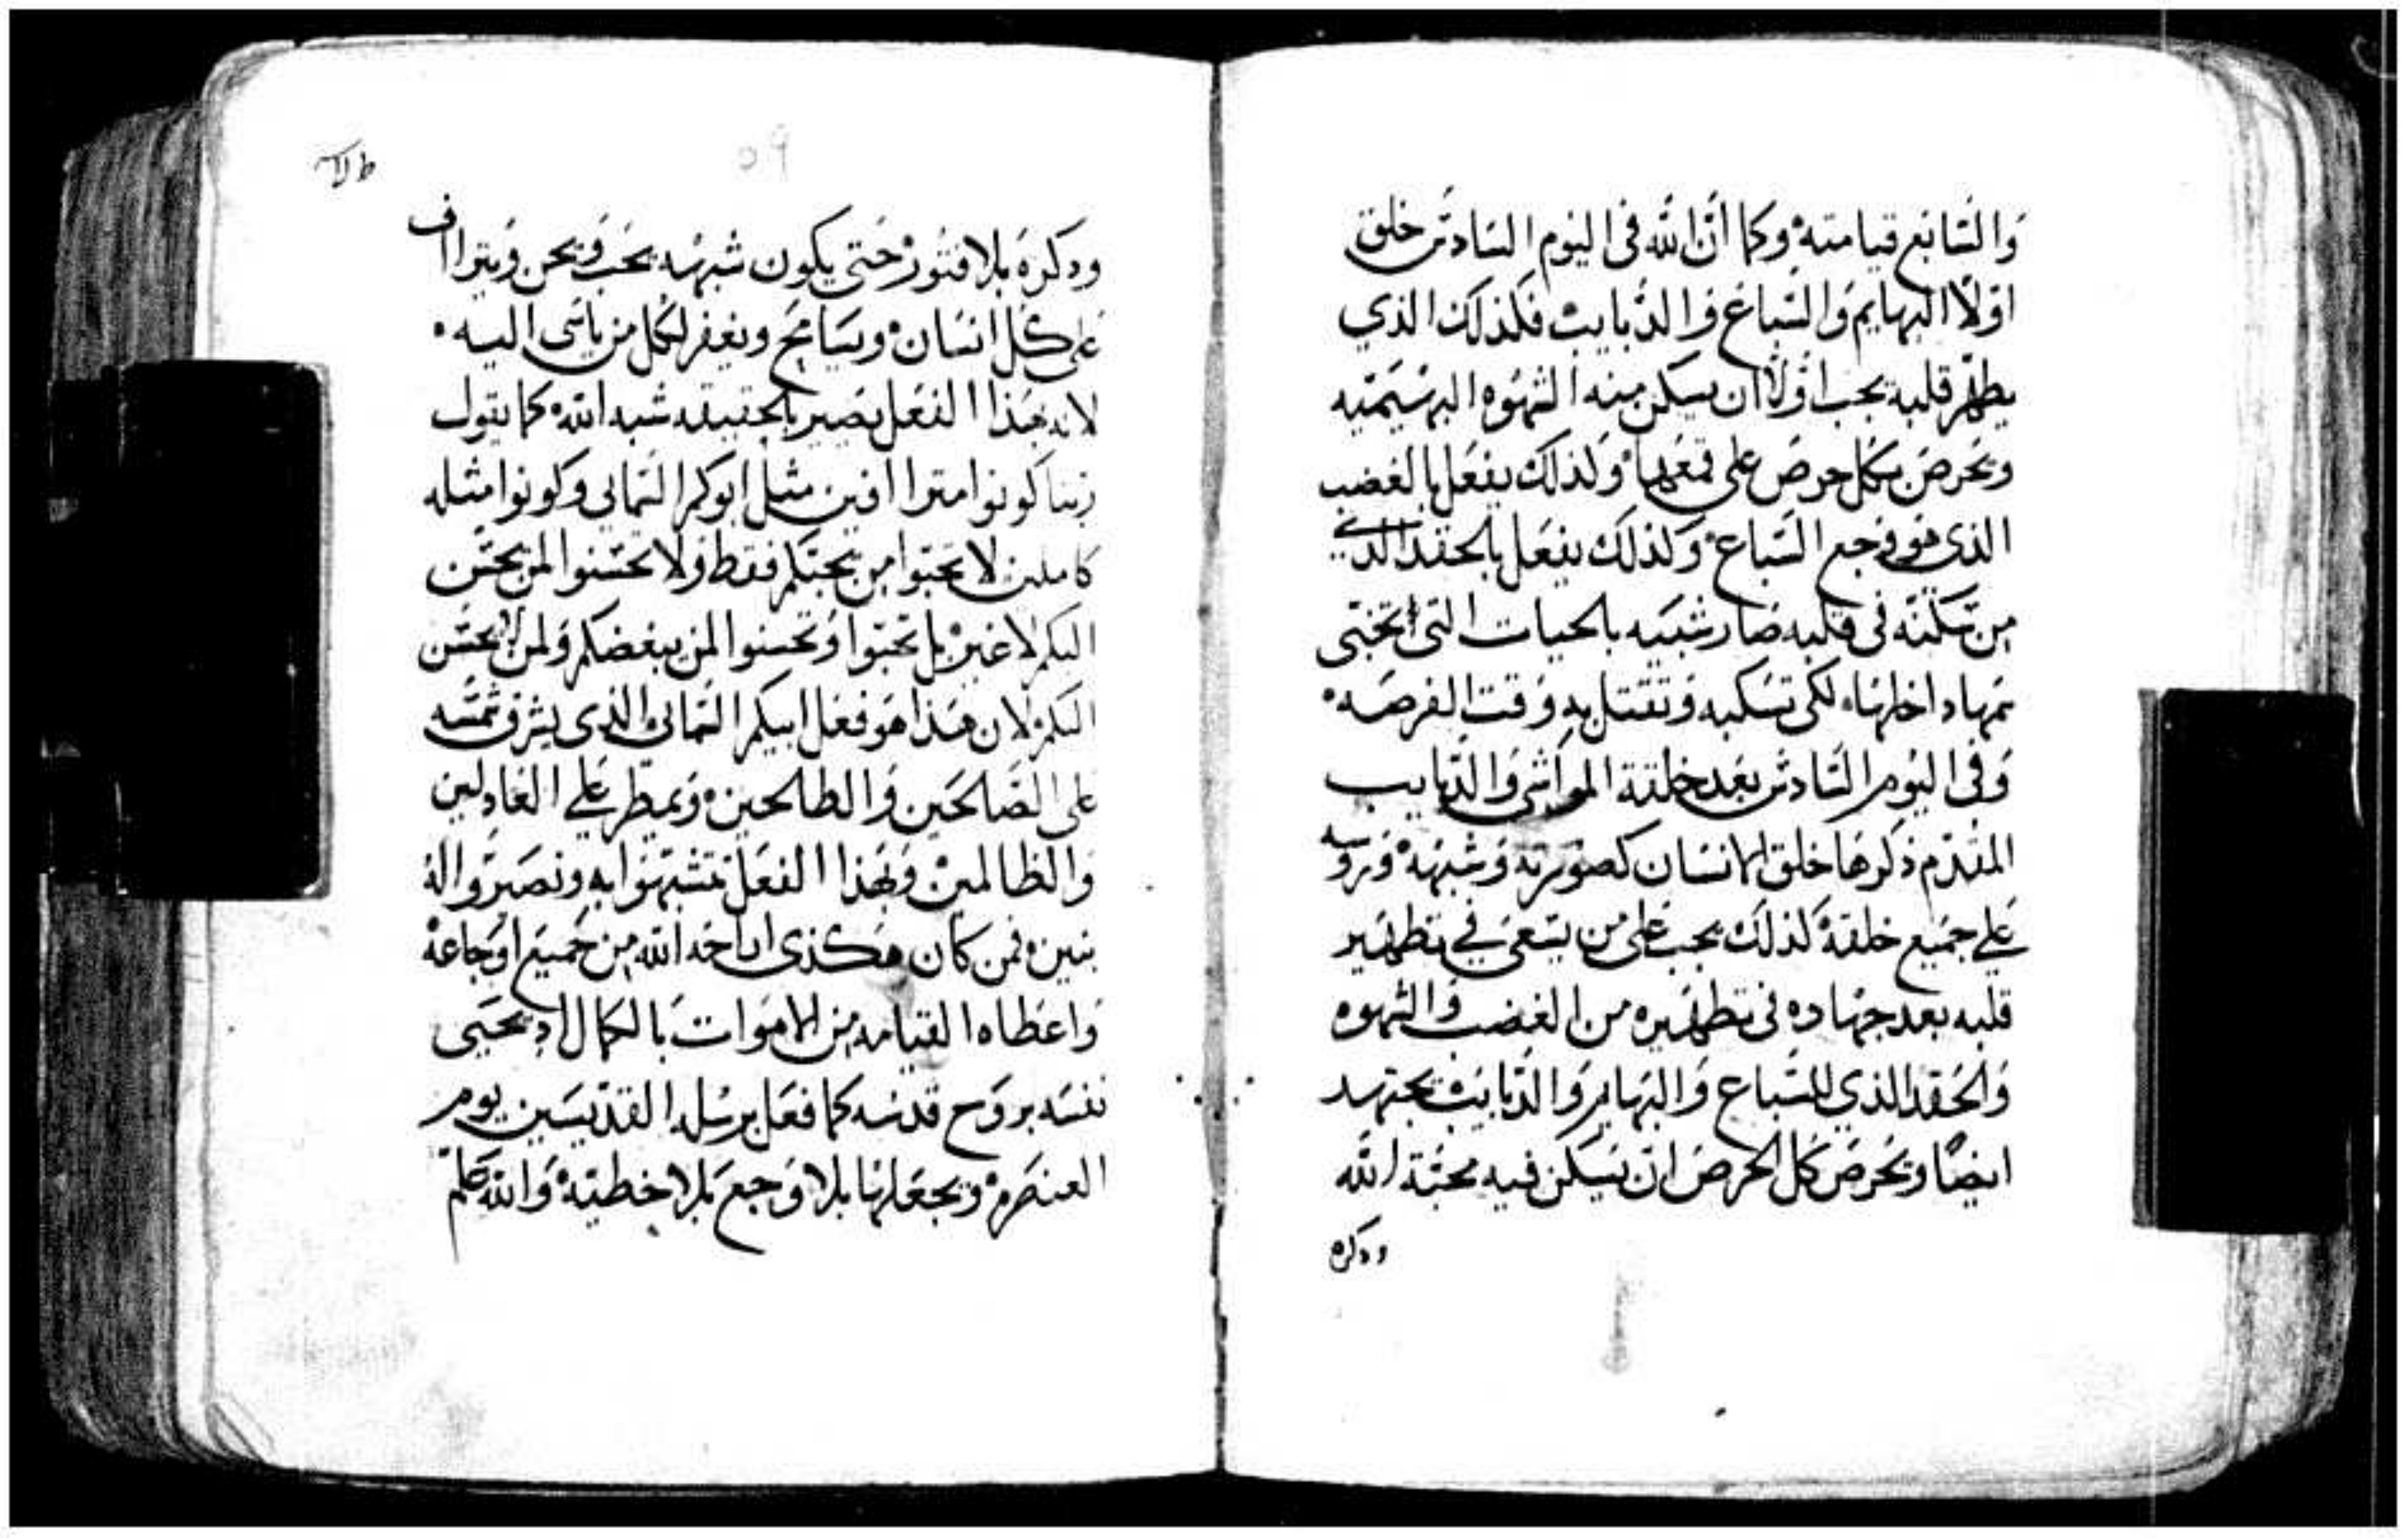 والسابع قيامته وكما أن الله في اليوم السادس خلق
اولاً البهايم والسباع والدبايب فكذلك الذي
يطهر قلبه يجب اولاً ان يسكن منه الشهوه البهيميه
ويحرص بكل حرص على قمعها ولذلك يفعل بالغضب
الذي هو وجع السباع وكذلك يفعل بالحقد الذي
من سكنه في قلبه صار شبيه بالحيات التي تخبي
سمها داخلها لكي تسكبه وتقتل به وقت الفرصه
وفي اليوم السادس بعد خلقة المواشي والدبايب
المقدم ذكرها خلق الانسان كصورته وشبهه وروسه
علي جميع خلقة كذلك يجب على من يسعى في تطهير
قلبه بعد جهاده في تطهيره من الغضب والشهوه
والحقد الذي للسباع والبهايم والدبايب يجتهد
ايضًا ويحرص كل الحرص ان يسكن فيه محبة الله
ودكره
٥٩
ودكره بلا فتور حتى يكون شبهه يحب ويحن ويتراف
على كل انسان ويسامح ويغفر لكل من ياسى اليه
لانه بهذا الفعل يصير بالحقيقه شبه الله كما يقول
ربنا كونوا متراافين مثل ابوكم السمائي وكونوا مثله
كاملين لا تحبوا من يحبكم فقط ولا تحسنوا لمن يحسن
اليكم لا غير بل تحبوا وتحسنوا لمن يبغضكم ولمن لا يحسن
اليكم لان هذا هو فعل ابيكم السمائي الذي يشرق شمسه
على الصالحين والطالحين ويمطر علي العادلين
والظالمين وبهذا الفعل تتشبهوا به وتصيروا له
بنين فمن كان هكذى اراحه الله من جميع اوجاعه
واعطاه القيامه من الاموات بالكمال اد يحيى
نفسه بروح قدسه كما فعل برسله القديسين يوم
العنصره ويجعلها بلا وجع بلا خطيه والله كلم